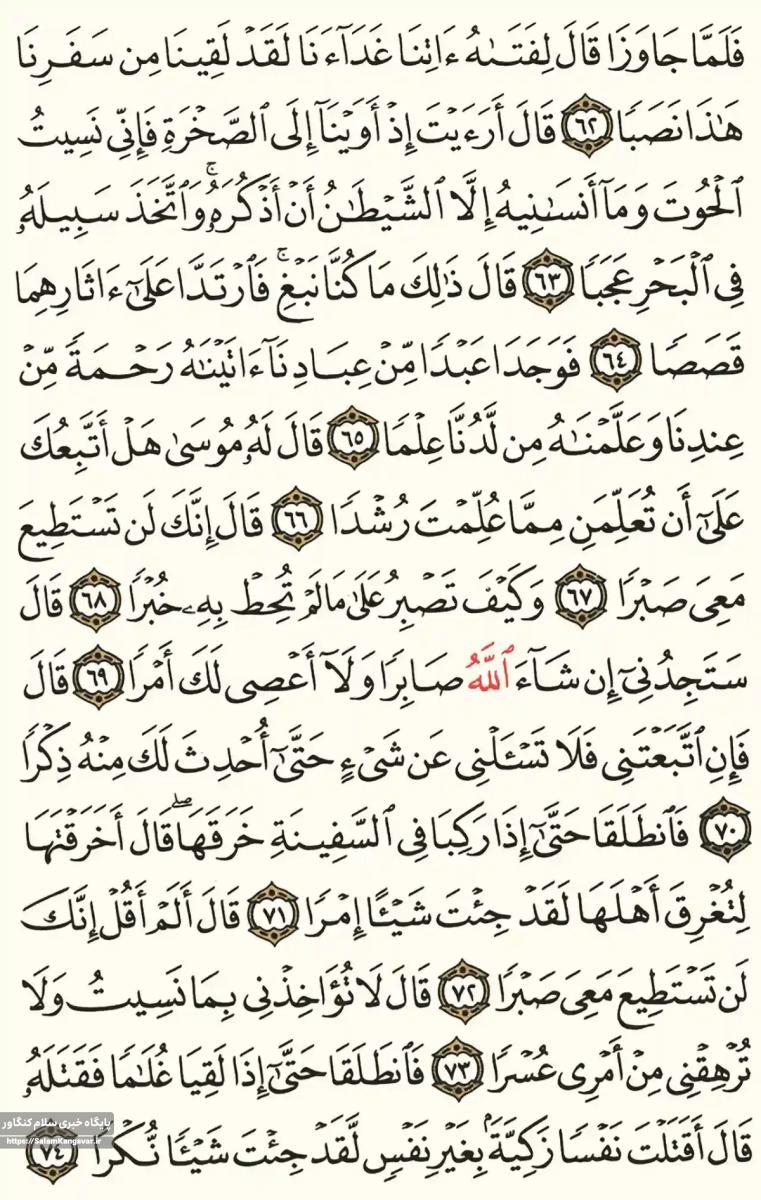 فَلَمَّا جَاوَزَا قَالَ لِفَتَىٰهُ ءَاتِنَا غَدَآءَنَا لَقَدْ لَقِينَا مِن سَفَرِنَا
هَٰذَا نَصَبًا ﴿٦٢﴾ قَالَ أَرَءَيْتَ إِذْ أَوَيْنَآ إِلَى ٱلصَّخْرَةِ فَإِنِّى نَسِيتُ
ٱلْحُوتَ وَمَآ أَنسَىٰنِيهُ إِلَّا ٱلشَّيْطَٰنُ أَنْ أَذْكُرَهُۥ ۚ وَٱتَّخَذَ سَبِيلَهُۥ
فِى ٱلْبَحْرِ عَجَبًا ﴿٦٣﴾ قَالَ ذَٰلِكَ مَا كُنَّا نَبْغِ ۚ فَٱرْتَدَّا عَلَىٰٓ ءَاثَارِهِمَا
قَصَصًا ﴿٦٤﴾ فَوَجَدَا عَبْدًا مِّنْ عِبَادِنَآ ءَاتَيْنَٰهُ رَحْمَةً مِّنْ
عِندِنَا وَعَلَّمْنَٰهُ مِن لَّدُنَّا عِلْمًا ﴿٦٥﴾ قَالَ لَهُۥ مُوسَىٰ هَلْ أَتَّبِعُكَ
عَلَىٰٓ أَن تُعَلِّمَنِ مِمَّا عُلِّمْتَ رُشْدًا ﴿٦٦﴾ قَالَ إِنَّكَ لَن تَسْتَطِيعَ
مَعِىَ صَبْرًا ﴿٦٧﴾ وَكَيْفَ تَصْبِرُ عَلَىٰ مَا لَمْ تُحِطْ بِهِۦ خُبْرًا ﴿٦٨﴾ قَالَ
سَتَجِدُنِىٓ إِن شَآءَ ٱللَّهُ صَابِرًا وَلَآ أَعْصِى لَكَ أَمْرًا ﴿٦٩﴾ قَالَ
فَإِنِ ٱتَّبَعْتَنِى فَلَا تَسْـَٔلْنِى عَن شَىْءٍ حَتَّىٰٓ أُحْدِثَ لَكَ مِنْهُ ذِكْرًا
﴿٧٠﴾ فَٱنطَلَقَا حَتَّىٰٓ إِذَا رَكِبَا فِى ٱلسَّفِينَةِ خَرَقَهَا ۖ قَالَ أَخَرَقْتَهَا
لِتُغْرِقَ أَهْلَهَا لَقَدْ جِئْتَ شَيْـًٔا إِمْرًا ﴿٧١﴾ قَالَ أَلَمْ أَقُلْ إِنَّكَ
لَن تَسْتَطِيعَ مَعِىَ صَبْرًا ﴿٧٢﴾ قَالَ لَا تُؤَاخِذْنِى بِمَا نَسِيتُ وَلَا
تُرْهِقْنِى مِنْ أَمْرِى عُسْرًا ﴿٧٣﴾ فَٱنطَلَقَا حَتَّىٰٓ إِذَا لَقِيَا غُلَٰمًا فَقَتَلَهُۥ
قَالَ أَقَتَلْتَ نَفْسًا زَكِيَّةًۢ بِغَيْرِ نَفْسٍ لَّقَدْ جِئْتَ شَيْـًٔا نُّكْرًا ﴿٧٤﴾
پایگاه خبری سلام کنگاور
https://SalamKangavar.ir